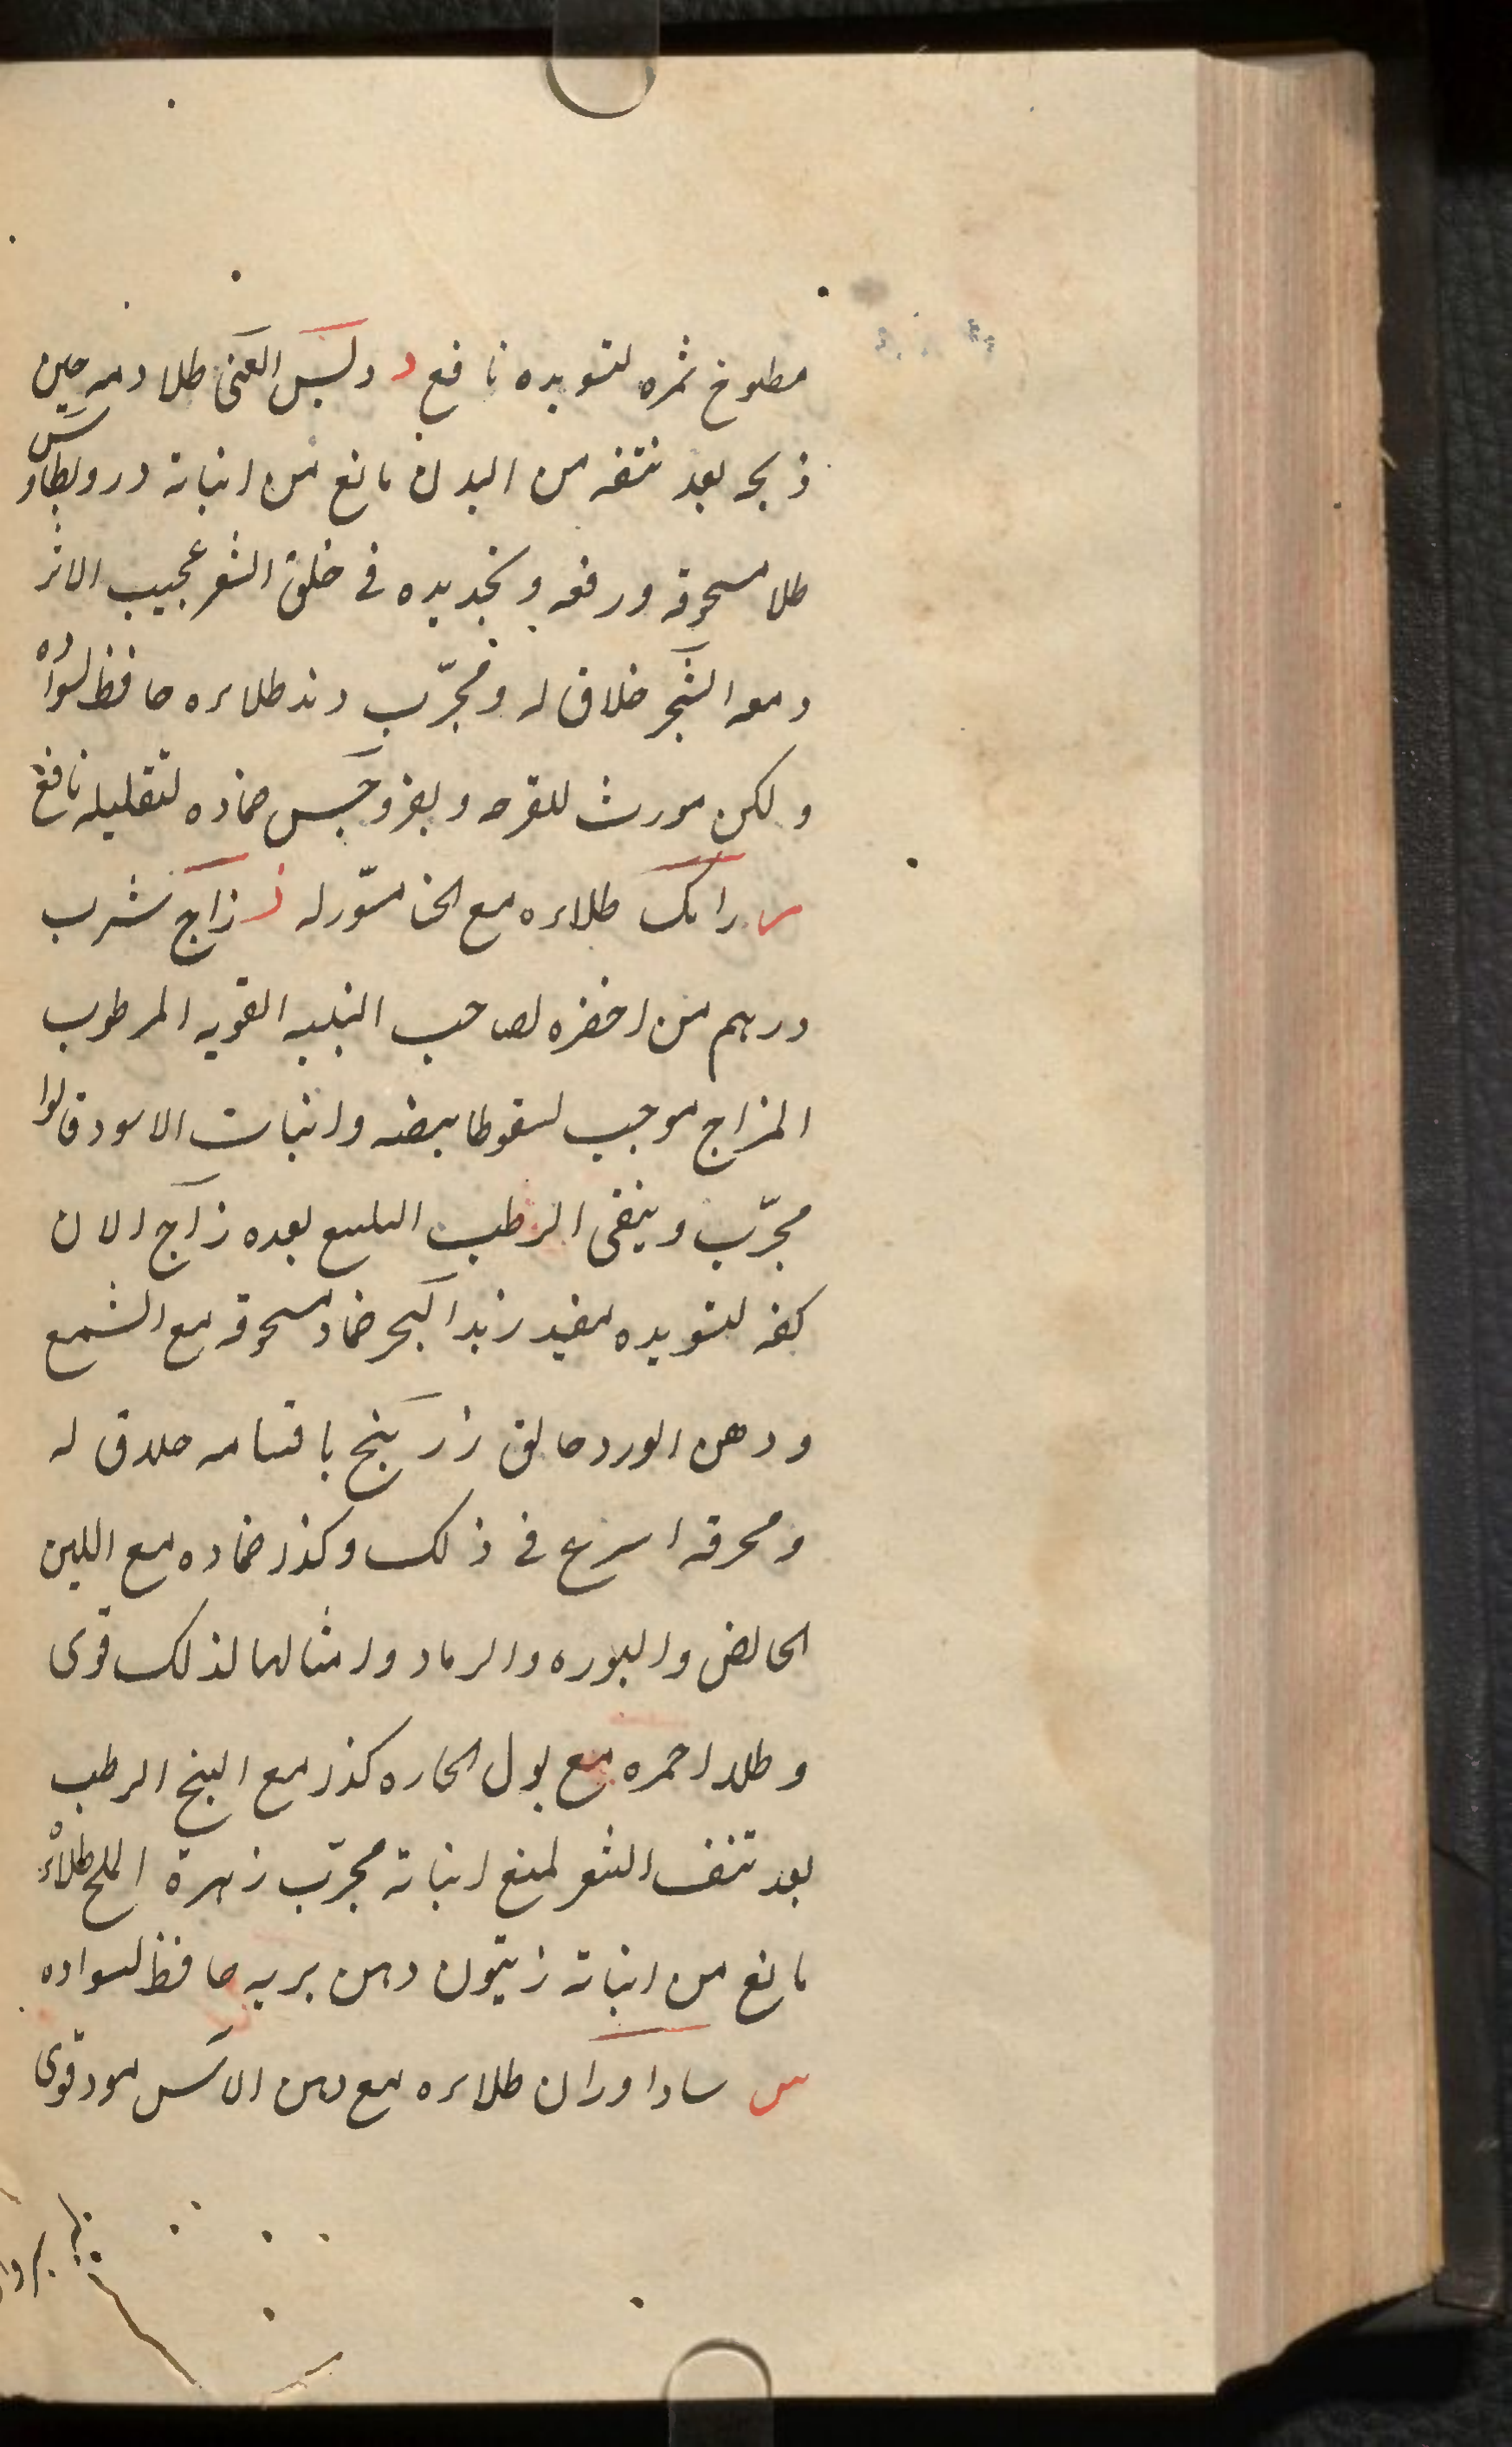 مطبوخ ثمره لتسويده نافع د دلبس العتى طلا دمه حين
ذبحه بعد نتفه من البدن مانع من انباته دروبطارس
طلا مسحوقه ورفعه وتجديده فى حلق الشعر عجيب الاثر
دمعه الشجر حلاق له ومجرّب دند طلاءه حافظ لسواده
ولكن مورث للقرحه
ضماده لتقليله نافع
ر رامك طلاءه مع الخل مسوّد له ز زاج شرب
درهم من اخضره لصاحب البنيه القويه المرطوب
المزاج موجب لسقوط ابيضه وانبات الاسود قالوا
مجرّب وينقى الرطب البلغم بعده زاج الان
كفه لتسويده مفيد زبد البحر ضماد مسحوقه مع الشمع
ودهن الورد حالق زرنيخ باقسامه حلاق له
ومحرقه اسرع فى ذلك وكذا ضماده مع اللبن
الحامض والبوره والرماد وامثالها لذلك قوى
وطلا احمره مع بول الحاره كذا مع البنج الرطب
بعد نتف الشعر لمنع انباته مجرّب زهرة الملح طلاءه
مانع من انباته زيتون دهن بريه حافظ لسواده
س ساداوران طلاءه مع دهن الاس مسود قوى